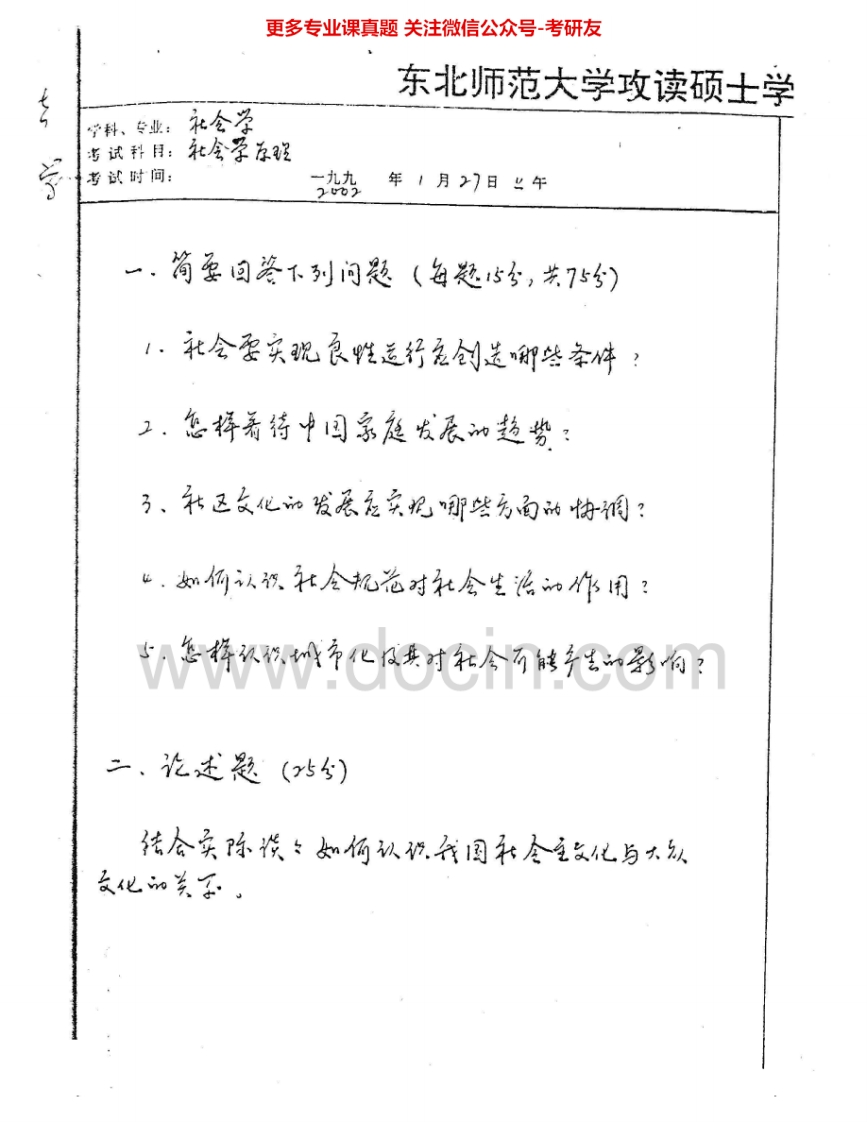 更多专业课真题 关注微信公众号-考研友
东北师范大学攻读硕士学
学科、专业：社会学
考试科目：社会学原理
考试时间：
一九九
2002 年 1 月 27 日 上午
一、简要回答下列问题（每题15分，共75分）
1、社会要实现良性运行应创造哪些条件？
2、怎样看待中国家庭发展的趋势？
3、社区文化的发展应实现哪些方面的协调？
4、如何认识社会规范对社会生活的作用？
5、怎样认识城市化及其对社会可能产生的影响？
www.docin.com
二、论述题（25分）
结合实际谈谈如何认识我国社会主文化与大众
文化的关系。